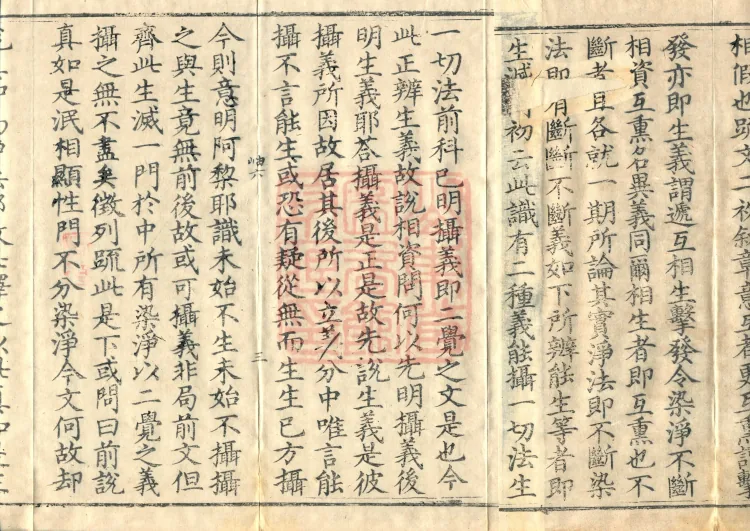 相假也疏文二初叙章意互者更互重言擊
發亦即生義謂遞互相生擊發令染淨不斷
相資互熏名異義同爾相生者即互熏也不
斷者且各就一期所論其實淨法即不斷染
法即有斷斷不斷義如下所辨能生等者即
生滅 初云此識有二種義能攝一切法生
一切法前科已明攝義即二覺之文是也今
此正辨生義故說相資問何以先明攝義後
明生義耶荅攝義是正是故先說生義是彼
攝義所因故居其後所以立義分中唯言能
攝不言能生或恐有疑從無而生生已方攝
岫六
三
今則意明阿黎耶識未始不生未始不攝攝
之與生竟無前後故或可攝義非局前文但
齊此生滅一門於中所有染淨以二覺之義
攝之無不盡矣徵列疏此是下或問曰前說
真如是泯相顯性門不分染淨今文何故却